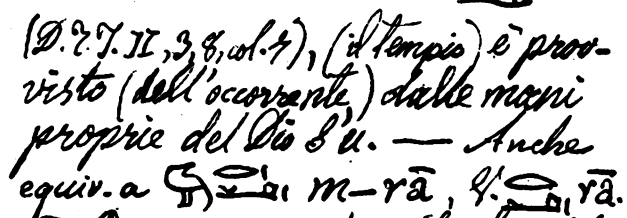 (D.T.J. II, 3, 8, col. 4), (il tempio) è prov-
visto (dell'occorrente) dalle mani
proprie del Dio S'u. — Anche
equiv. a m-rā, V. rā.